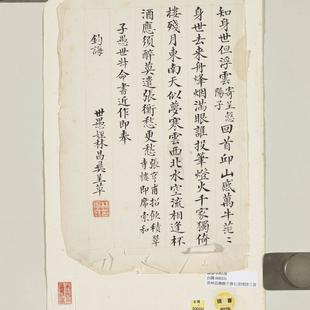 知身世但浮雲寄呈陽子回首邱山感萬牛茫茫
身世去來舟烽烟滿眼誰投筆燈火千家獨倚
樓殘月東南天似夢寒雲西北水空流相逢杯
酒應須醉莫遣張衡愁更愁張亨甫招飲積翠寺樓即席索和
子愚世命書近作即奉
鈞誨
世愚姪林昌彝呈草